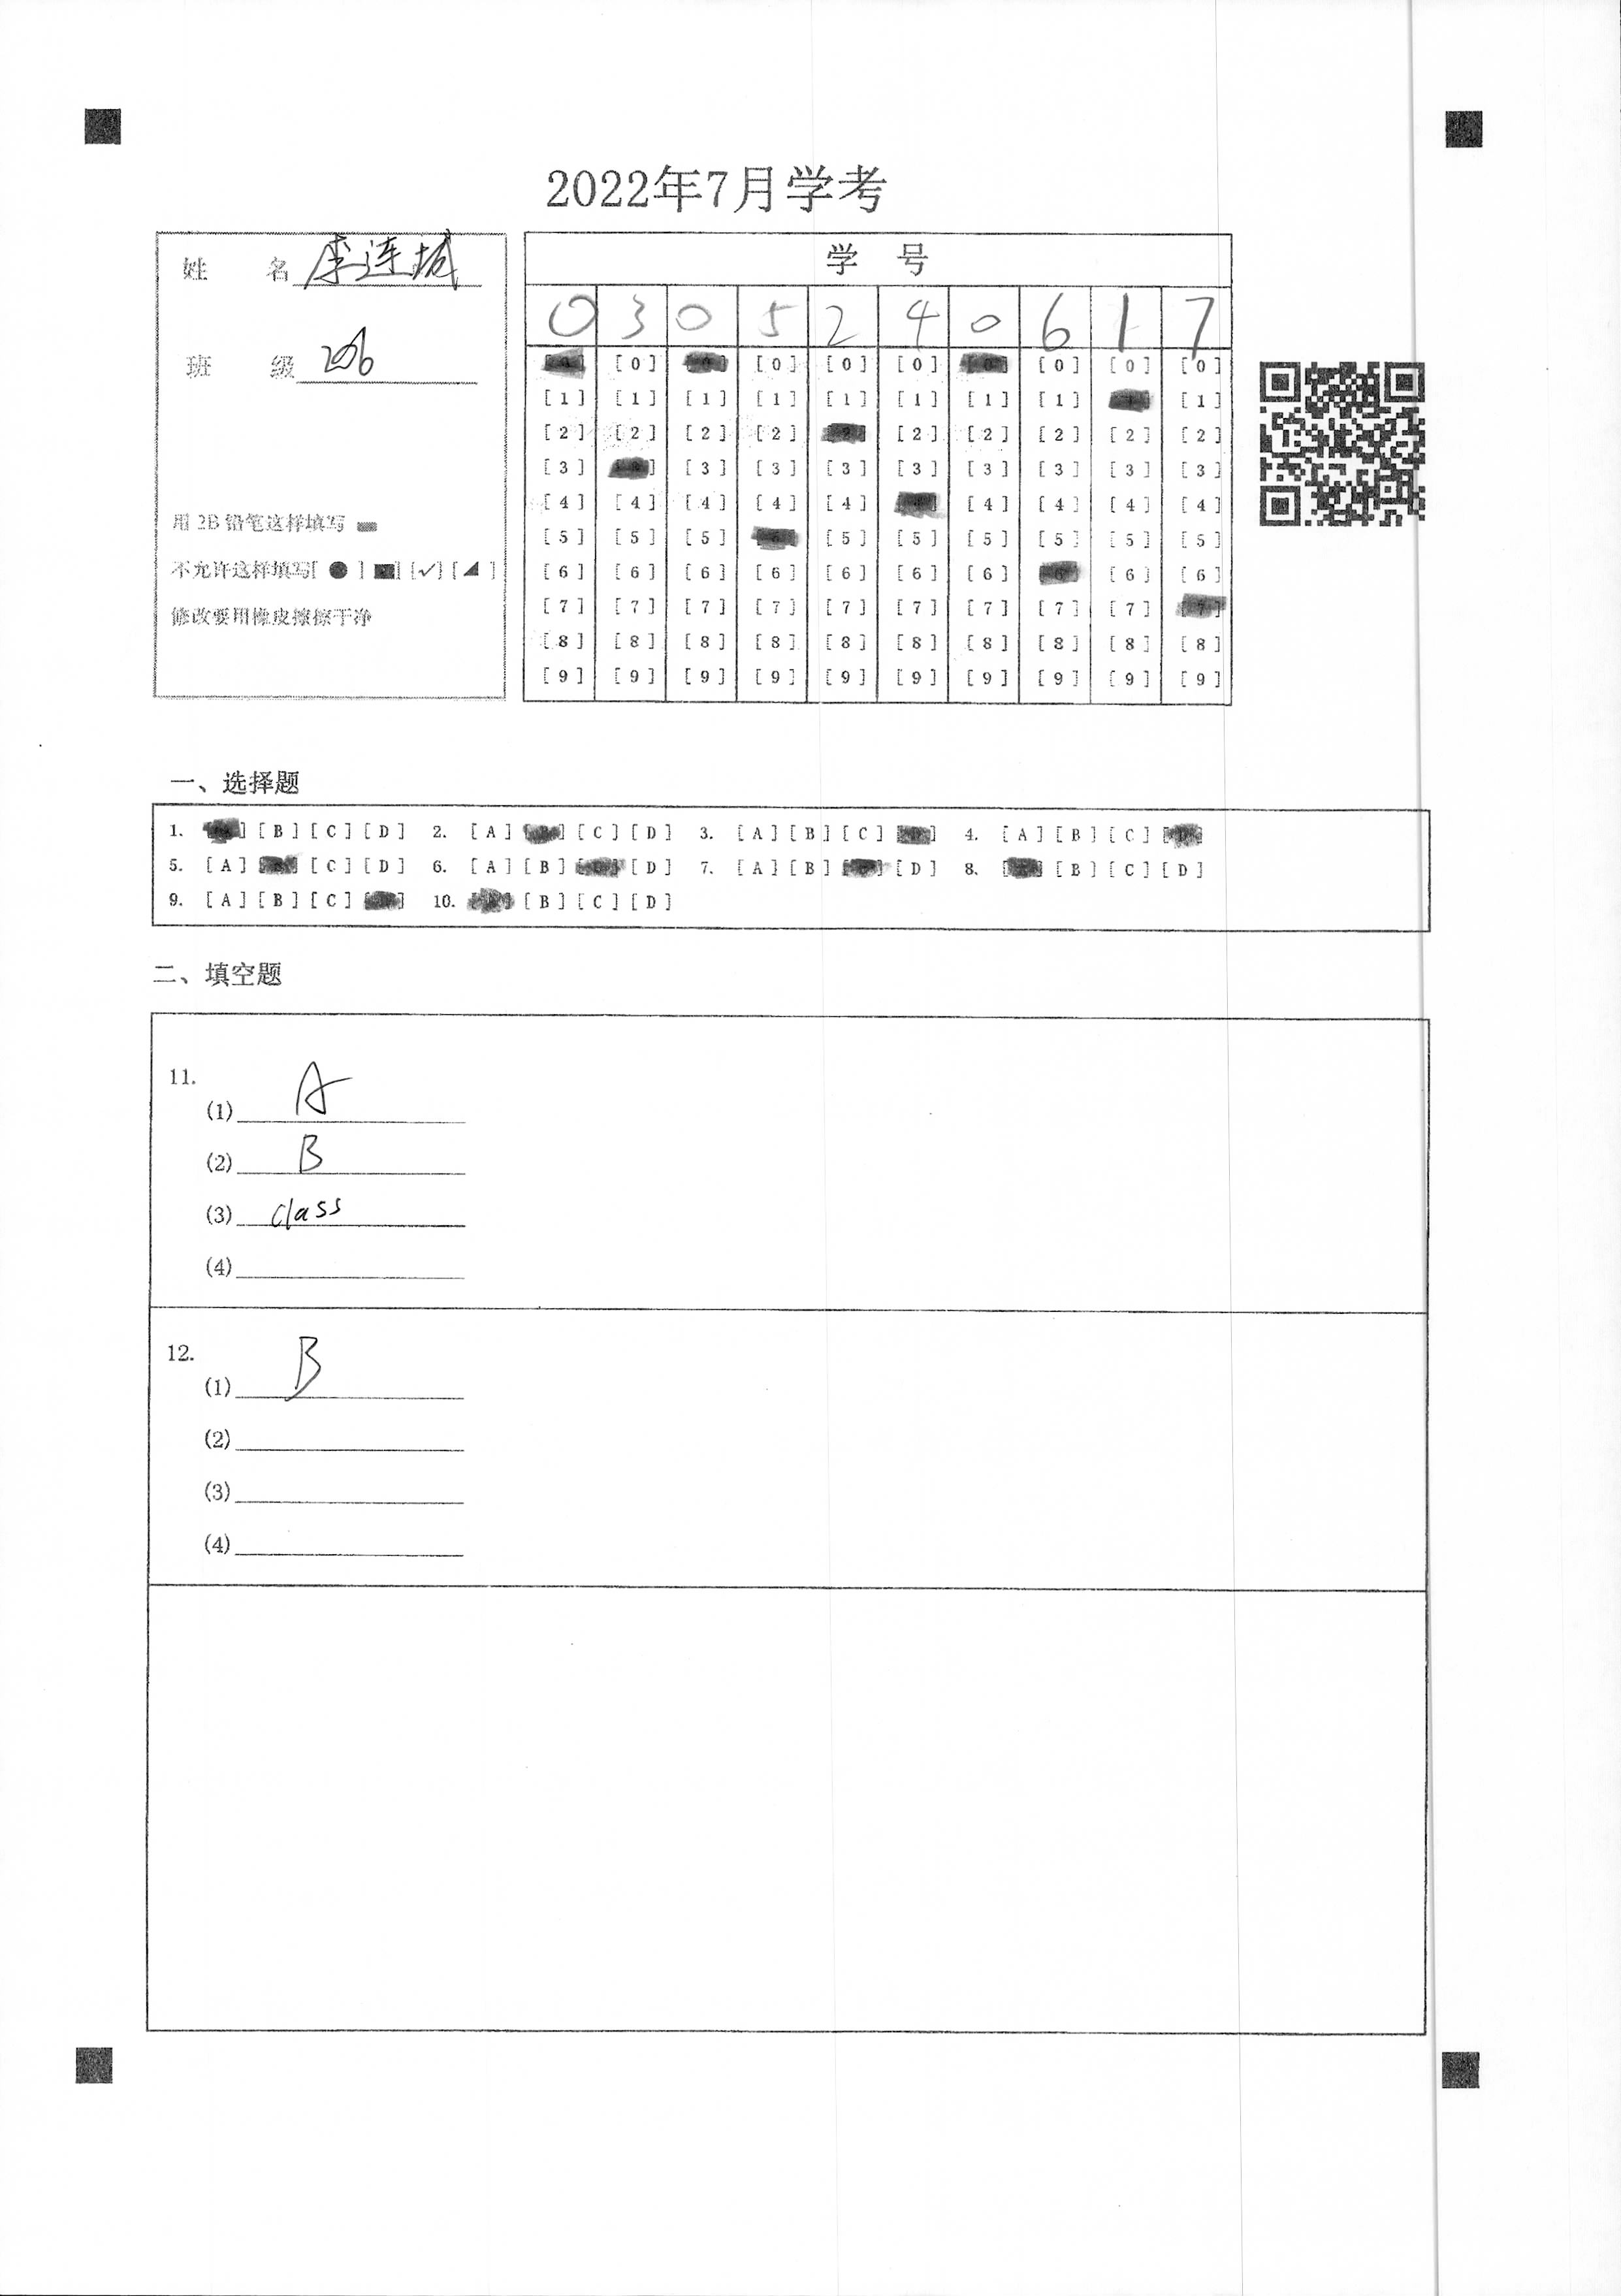 2022年7月学考
姓 名 李连城
班 级 2006
用 2B 铅笔这样填写
不允许这样填写[ ● ] [■] [✓] [◢ ]
修改要用橡皮擦擦干净
学 号
0 3 0 5 2 4 0 6 1 7
[0] [0] [0] [0] [0] [0] [0]
[1] [1] [1] [1] [1] [1] [1] [1] [1]
[2] [2] [2] [2] [2] [2] [2] [2] [2]
[3] [3] [3] [3] [3] [3] [3] [3] [3]
[4] [4] [4] [4] [4] [4] [4] [4] [4]
[5] [5] [5] [5] [5] [5] [5] [5] [5]
[6] [6] [6] [6] [6] [6] [6] [6] [6]
[7] [7] [7] [7] [7] [7] [7] [7] [7]
[8] [8] [8] [8] [8] [8] [8] [8] [8] [8]
[9] [9] [9] [9] [9] [9] [9] [9] [9] [9]
一、选择题
1. [B] [C] [D] 2. [A] [C] [D] 3. [A] [B] [C] 4. [A] [B] [C]
5. [A] [C] [D] 6. [A] [B] [D] 7. [A] [B] [D] 8. [B] [C] [D]
9. [A] [B] [C] 10. [B] [C] [D]
二、填空题
11.
(1) A
(2) B
(3) class
(4)
12.
(1) B
(2)
(3)
(4)